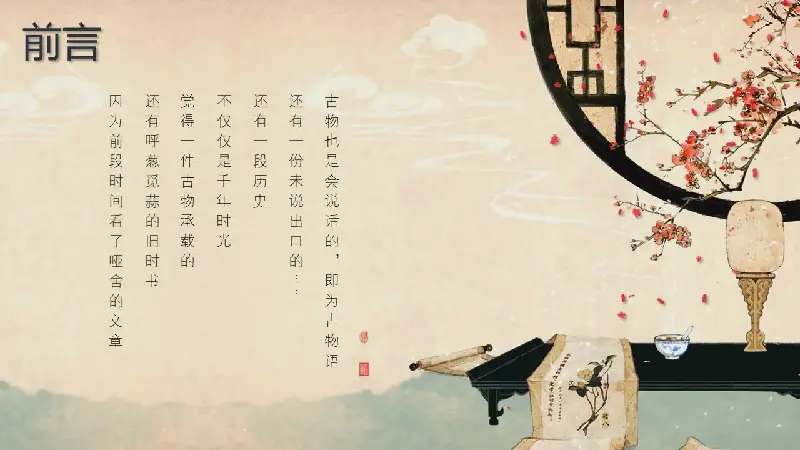 前言
因为前段时间看了哑舍的文章
还有呼葱觅蒜的旧时书
觉得一件古物承载的
不仅仅是千年时光
还有一段历史
还有一份未说出口的…
古物也是会说话的，即为古物语